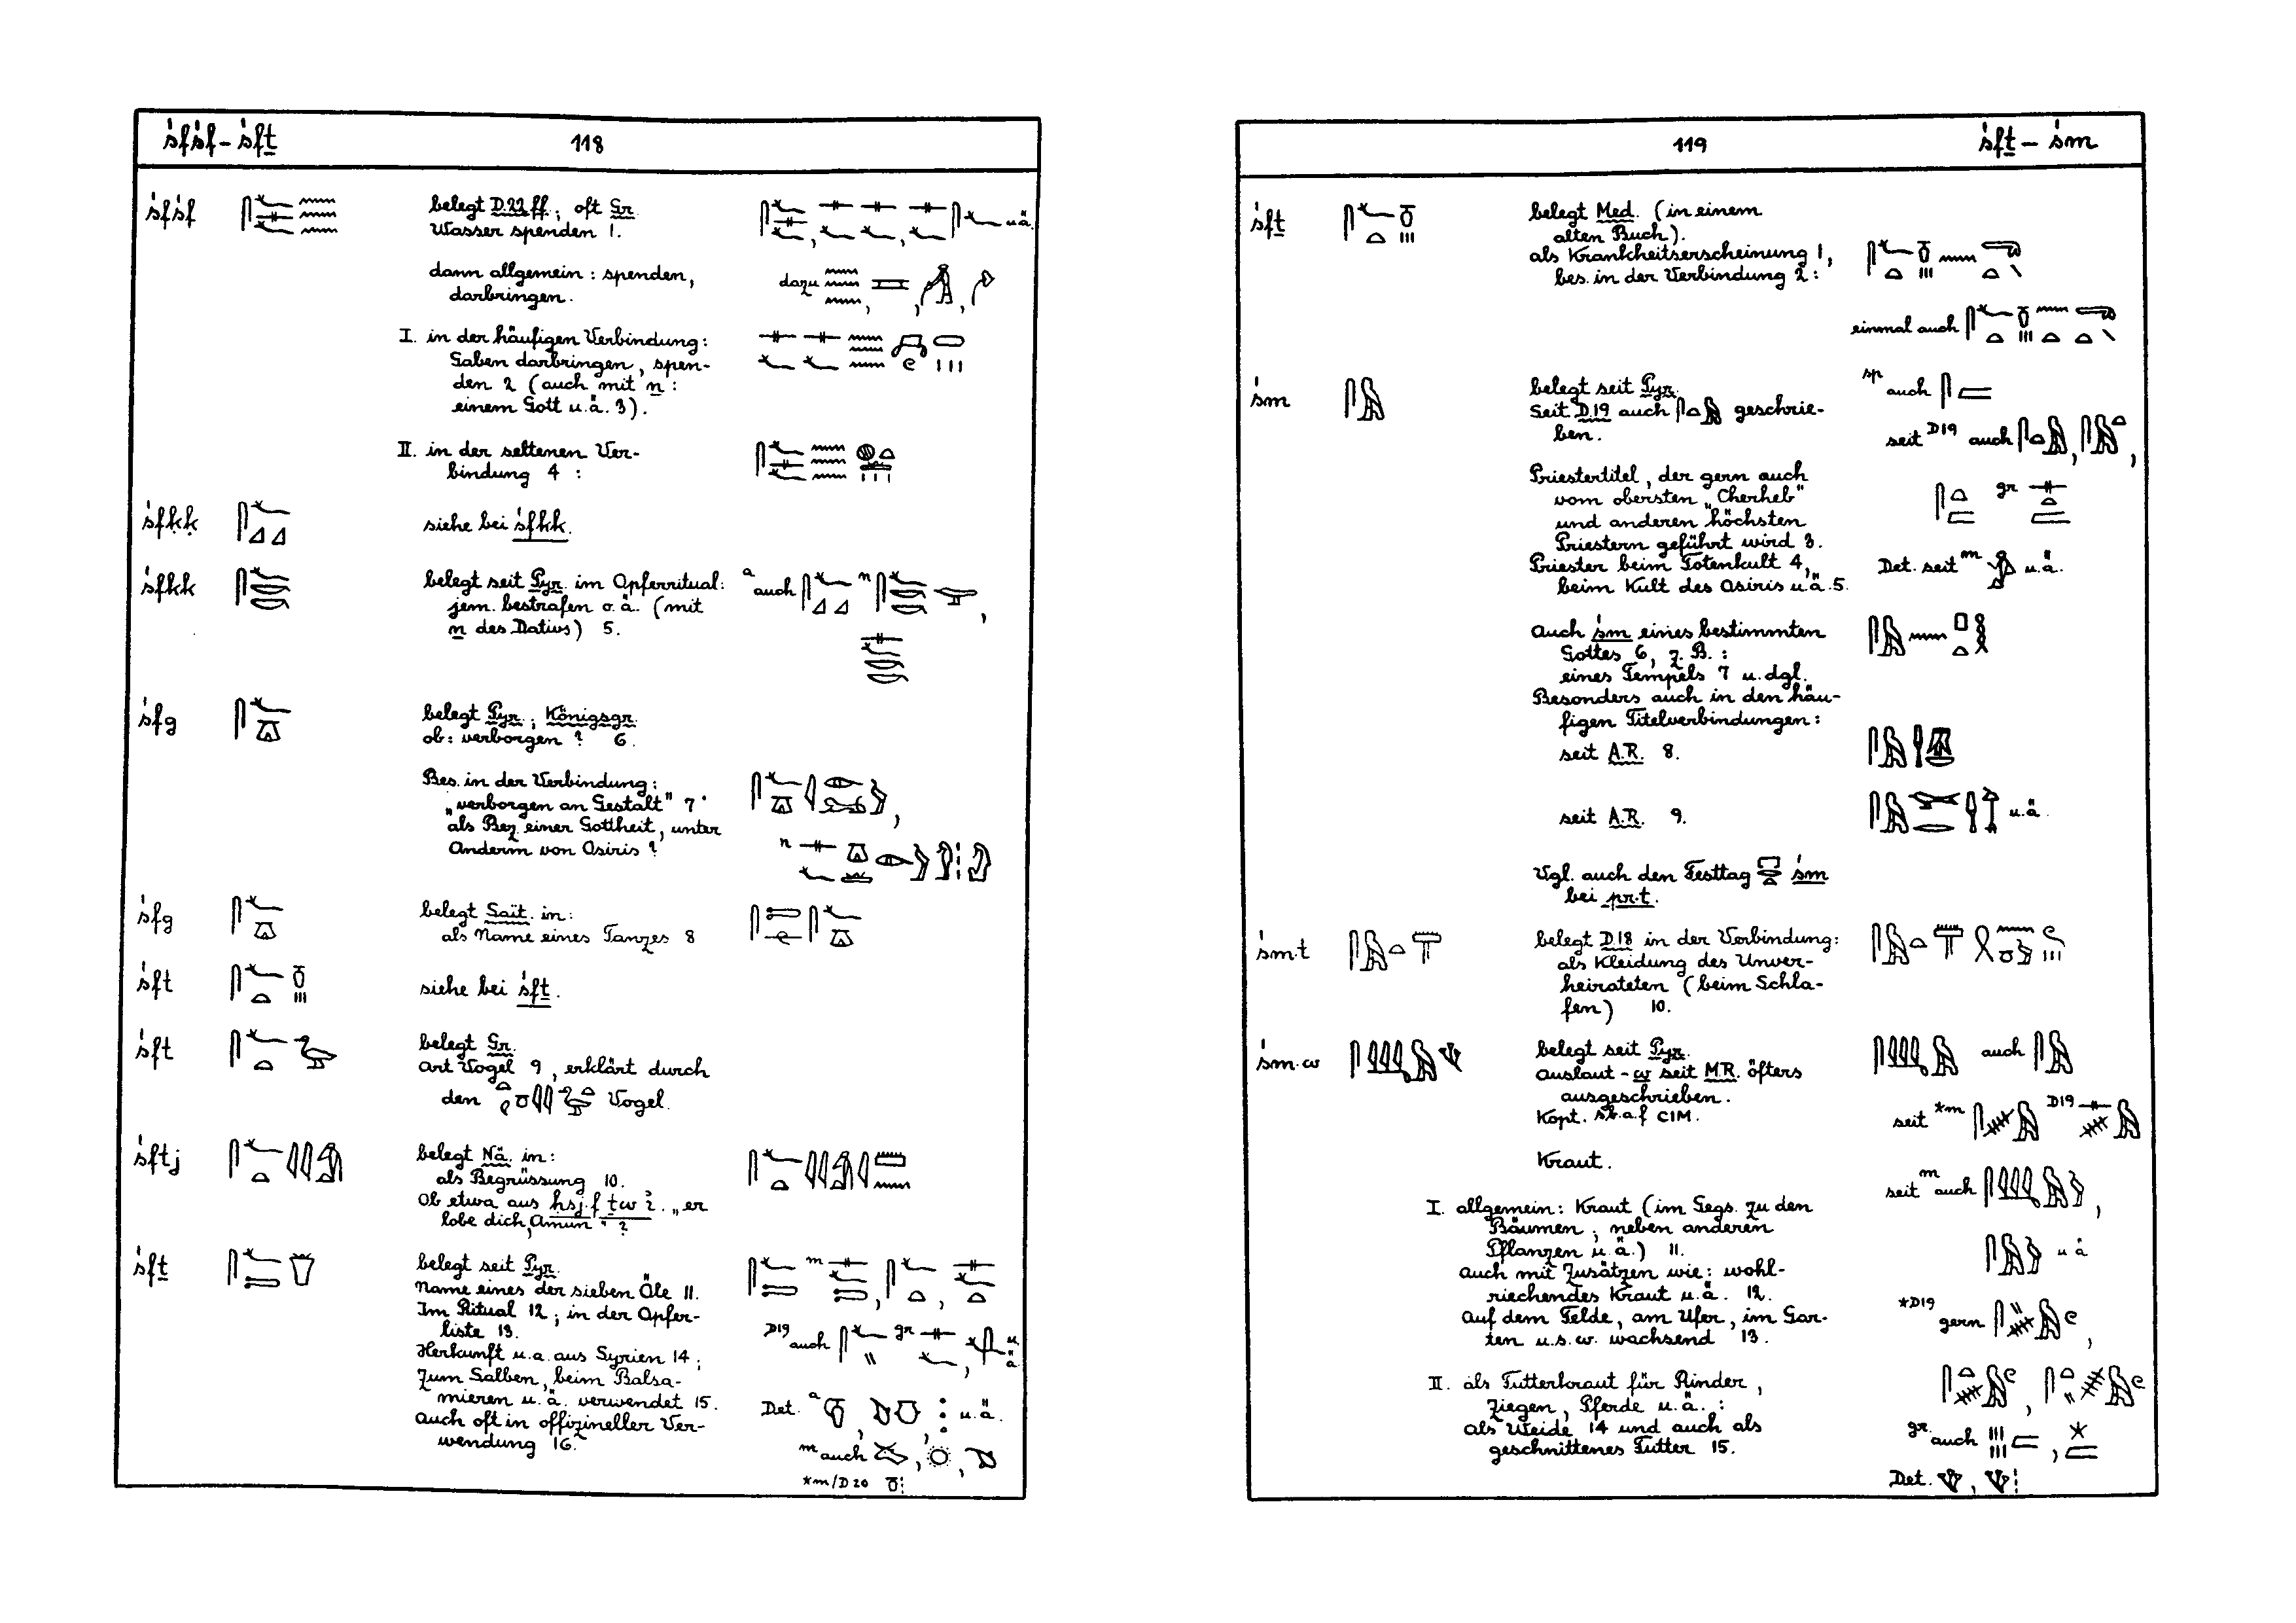 śfśf – śfṯ 118
śfśf belegt D.22 ff; oft Gr.
Wasser spenden 1. u.ä.
dann allgemein: spenden, dazu
darbringen.
I. in der häufigen Verbindung:
Gaben darbringen, spen-
den 2 (auch mit n:
einem Gott u.ä. 3).
II. in der seltenen Ver-
bindung 4 :
śfḳḳ siehe bei śfkk.
śfkk belegt seit Pyr. im Opferritual: a auch n
jem. bestrafen o.ä. (mit
n des Dativs) 5.
śfg belegt Pyr.; Königsgr.
ob: verborgen? 6.
Bes. in der Verbindung:
„verborgen an Gestalt" 7
als Bez. einer Gottheit, unter
Anderm von Osiris? n
śfg belegt Sait. in:
als Name eines Tanzes 8
śft siehe bei śfṯ.
śft belegt Gr.
Art Vogel 9, erklärt durch
den Vogel.
śftj belegt Nä. in:
als Begrüssung 10.
Ob etwa aus ḥsj.f ṯw „er
lobe dich, Amun"?
śfṯ belegt seit Pyr. m
Name eines der sieben Öle 11.
Im Ritual 12; in der Opfer-
liste 13. D19 auch gr u.ä.
Herkunft u.a. aus Syrien 14;
Zum Salben, beim Balsa-
mieren u.ä. verwendet 15. Det. a u.ä.
Auch oft in offizineller Ver-
wendung 16. m auch
*m/D20
119 śfṯ – śm
śfṯ belegt Med. (in einem
alten Buch).
als Krankheitserscheinung 1,
bes. in der Verbindung 2:
einmal auch
śm belegt seit Pyr. sp auch
Seit D.19 auch geschrie-
ben. seit D19 auch
Priestertitel, der gern auch
vom obersten „Cherheb" gr
und anderen höchsten
Priestern geführt wird 3.
Priester beim Totenkult 4, Det. seit m u.ä.
beim Kult des Osiris u.ä. 5.
Auch śm eines bestimmten
Gottes 6, z.B.:
eines Tempels 7 u. dgl.
Besonders auch in den häu-
figen Titelverbindungen:
seit A.R. 8.
seit A.R. 9. u.ä.
Vgl. auch den Festtag śm
bei pr.t.
śm.t belegt D.18 in der Verbindung:
als Kleidung des Unver-
heirateten (beim Schla-
fen) 10.
śm.w belegt seit Pyr. auch
Auslaut -w seit MR. öfters
ausgeschrieben.
Kopt. s.b.a.f CIM. seit *m D19
Kraut. seit m auch
I. allgemein: Kraut (im Gegs. zu den
Bäumen; neben anderen
Pflanzen u.ä.) 11. u.ä.
auch mit Zusätzen wie: wohl-
riechendes Kraut u.ä. 12.
auf dem Felde, am Ufer, im Gar- *D19 gern
ten u.s.w. wachsend 13.
II. als Futterkraut für Rinder,
Ziegen, Pferde u.ä.:
als Weide 14 und auch als gr. auch
geschnittenes Futter 15.
Det.